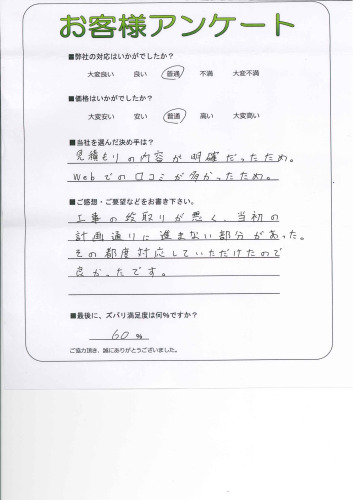 お客様アンケート
■弊社の対応はいかがでしたか?
大変良い 良い 普通 不満 大変不満
■価格はいかがでしたか?
大変安い 安い 普通 高い 大変高い
■当社を選んだ決め手は?
見積もりの内容が明確だったため。
Webでの口コミが多かったため。
■ご感想・ご要望などをお書き下さい。
工事の段取りが悪く、当初の
計画通りに進まない部分があった。
その都度対応していただけたので
良かったです。
■最後に、ズバリ満足度は何%ですか?
60 %
ご協力頂き、誠にありがとうございました。